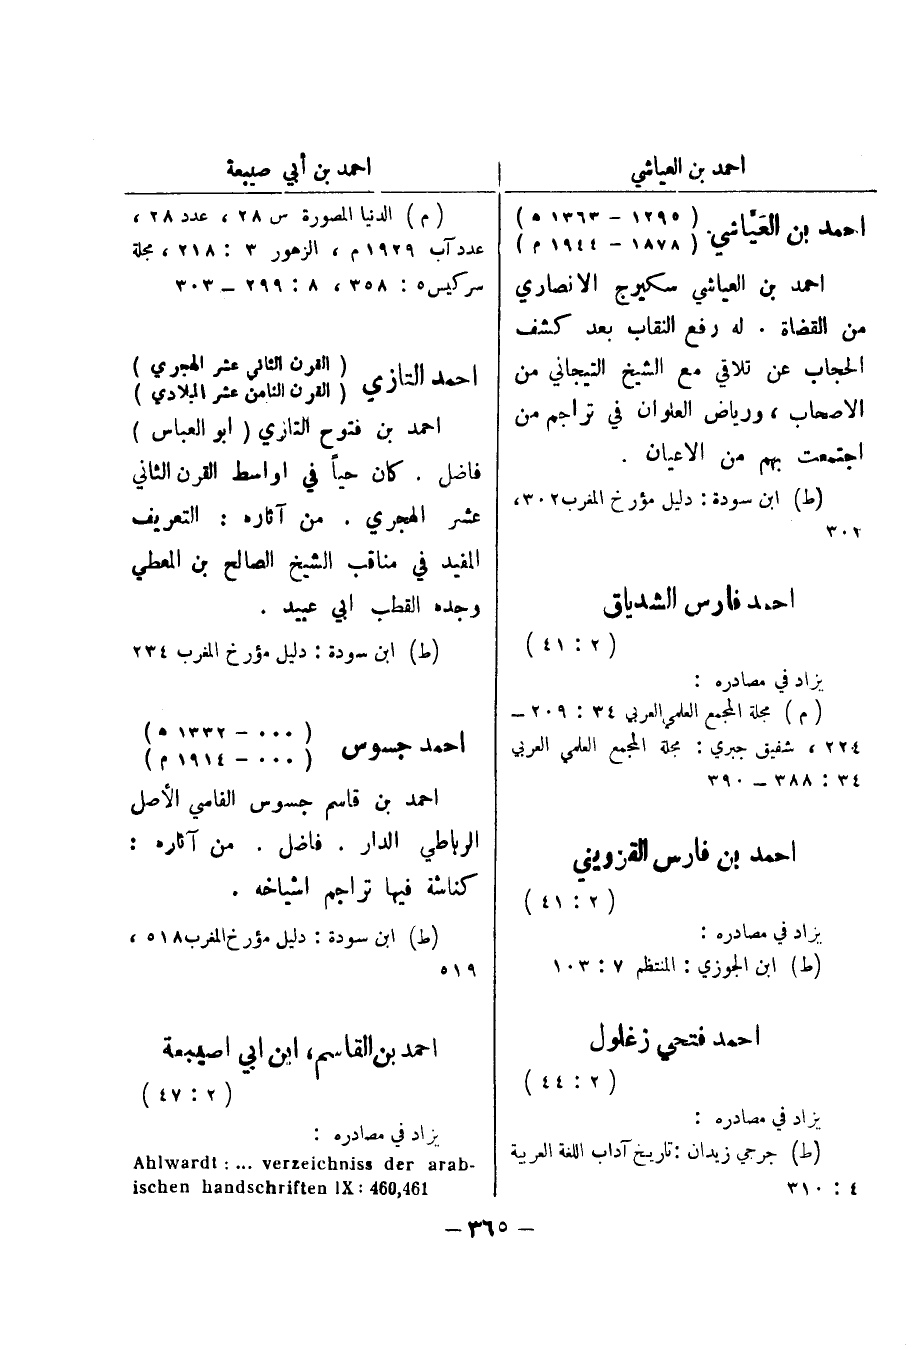 احمد بن العياشي
احمد بن أبي صيبعة
احمد بن العَيَّاشي ( ١٢٩٥ – ١٣٦٣ ه )
( ١٨٧٨ – ١٩٤٤ م )
احمد بن العياشي سكيرج الانصاري
من القضاة . له رفع النقاب بعد كشف
الحجاب عن تلاقي مع الشيخ التيجاني من
الاصحاب ، ورياض العلوان في تراجم من
اجتمعت بهم من الاعيان .
(ط) ابن سودة : دليل مؤرخ المغرب ٣٠٢،
٣٠٢
احمد فارس الشدياق
( ٢ : ٤١ )
يزاد في مصادره :
( م ) مجلة المجمع العلمي العربي ٣٤ : ٢٠٩ –
٢٢٤ ، شفيق جبري : مجلة المجمع العلمي العربي
٣٤ : ٣٨٨ – ٣٩٠
احمد بن فارس القزويني
( ٢ : ٤١ )
يزاد في مصادره :
(ط) ابن الجوزي : المنتظم ٧ : ١٠٣
احمد فتحي زغلول
( ٢ : ٤٤ )
يزاد في مصادره :
(ط) جرجي زيدان : تاريخ آداب اللغة العربية
٤ : ٣١٠
( م ) الدنيا المصورة س ٢٨ ، عدد ٢٨ ،
عدد آب ١٩٢٩ م ، الزهور ٣ : ٢١٨ ، مجلة
سركيس ٥ : ٣٥٨ ، ٨ : ٢٩٩ – ٣٠٣
احمد التازي ( القرن الثاني عشر الهجري )
( القرن الثامن عشر الميلادي )
احمد بن فتوح التازي ( ابو العباس )
فاضل . كان حياً في اواسط القرن الثاني
عشر الهجري . من آثاره : التعريف
المفيد في مناقب الشيخ الصالح بن المعطي
وجده القطب ابي عبيد .
(ط) ابن سودة : دليل مؤرخ المغرب ٢٣٤
احمد جسوس ( ٠٠٠ – ١٣٣٢ ه )
( ٠٠٠ – ١٩١٤ م )
احمد بن قاسم جسوس الفاسي الأصل
الرباطي الدار . فاضل . من آثاره :
كناشة فيها تراجم اشياخه .
(ط) ابن سودة : دليل مؤرخ المغرب ٥١٨ ،
٥١٩
احمد بن القاسم، ابن ابي اصيبعة
( ٢ : ٤٧ )
يزاد في مصادره :
Ahlwardt : ... verzeichniss der arab-
ischen handschriften IX : 460,461
– ٣٦٥ –